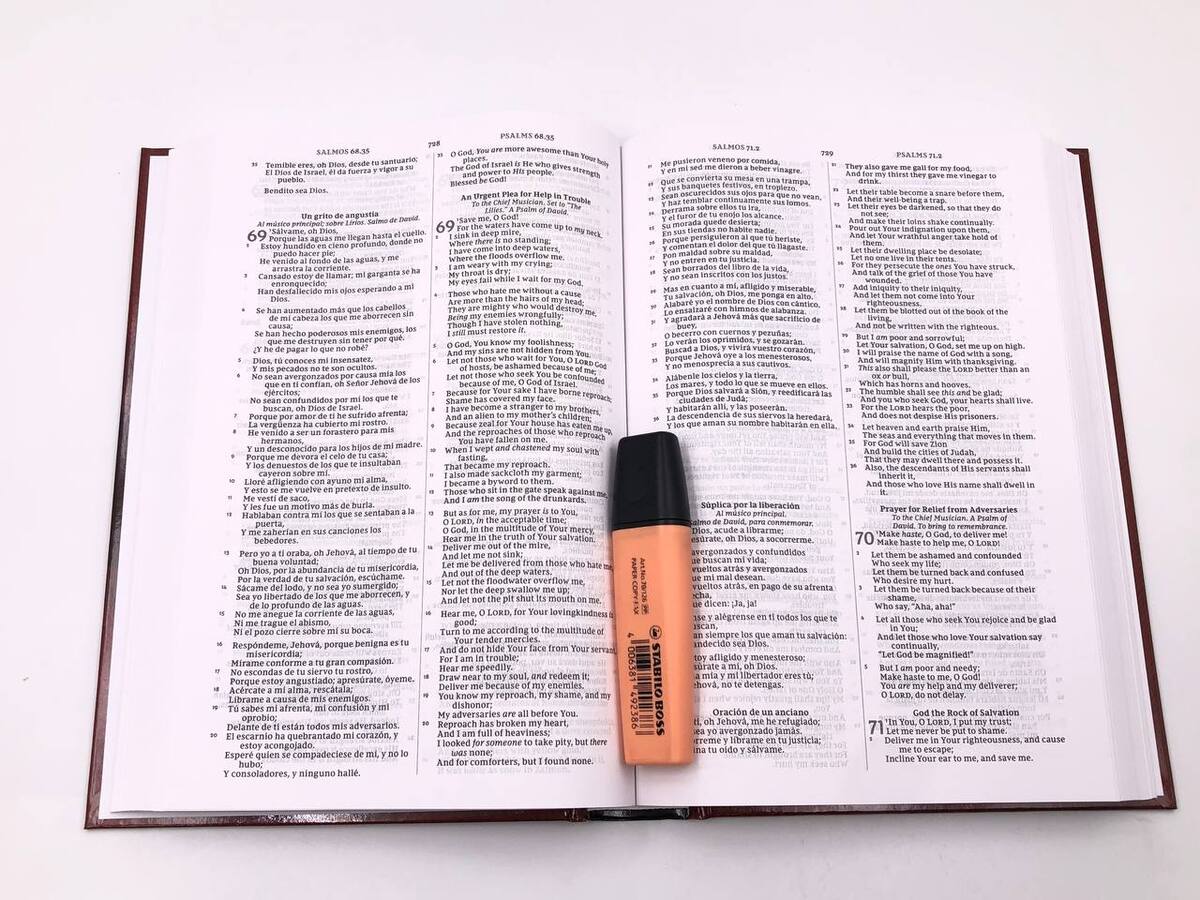 SALMOS 68.35
35 Temible eres, oh Dios, desde tu santuario;
El Dios de Israel, él da fuerza y vigor a su
pueblo.
Bendito sea Dios.
Un grito de angustia
Al músico principal; sobre Lirios. Salmo de David.
69 1Sálvame, oh Dios,
Porque las aguas me llegan hasta el cuello.
2 Estoy hundido en cieno profundo, donde no
puedo hacer pie;
He venido al fondo de las aguas, y me
arrastra la corriente.
3 Cansado estoy de llamar; mi garganta se ha
enronquecido;
Han desfallecido mis ojos esperando a mi
Dios.
4 Se han aumentado más que los cabellos
de mi cabeza los que me aborrecen sin
causa;
Se han hecho poderosos mis enemigos, los
que me destruyen sin tener por qué.
¿Y he de pagar lo que no robé?
5 Dios, tú conoces mi insensatez,
Y mis pecados no te son ocultos.
6 No sean avergonzados por causa mía los
que en ti confían, oh Señor Jehová de los
ejércitos;
No sean confundidos por mí los que te
buscan, oh Dios de Israel.
7 Porque por amor de ti he sufrido afrenta;
La vergüenza ha cubierto mi rostro.
8 He venido a ser un forastero para mis
hermanos,
Y un desconocido para los hijos de mi madre.
9 Porque me devora el celo de tu casa;
Y los denuestos de los que te insultaban
cayeron sobre mí.
10 Lloré afligiendo con ayuno mi alma,
Y esto se me vuelve en pretexto de insulto.
11 Me vestí de saco,
Y les fue un motivo más de burla.
12 Hablaban contra mí los que se sentaban a la
puerta,
Y me zaherían en sus canciones los
bebedores.
13 Pero yo a ti oraba, oh Jehová, al tiempo de tu
buena voluntad;
Oh Dios, por la abundancia de tu misericordia,
Por la verdad de tu salvación, escúchame.
14 Sácame del lodo, y no sea yo sumergido;
Sea yo libertado de los que me aborrecen, y
de lo profundo de las aguas.
15 No me anegue la corriente de las aguas,
Ni me trague el abismo,
Ni el pozo cierre sobre mí su boca.
16 Respóndeme, Jehová, porque benigna es tu
misericordia;
Mírame conforme a tu gran compasión.
17 No escondas de tu siervo tu rostro,
Porque estoy angustiado; apresúrate, óyeme.
18 Acércate a mi alma, rescátala;
Líbrame a causa de mis enemigos.
19 Tú sabes mi afrenta, mi confusión y mi
oprobio;
Delante de ti están todos mis adversarios.
20 El escarnio ha quebrantado mi corazón, y
estoy acongojado.
Esperé quien se compadeciese de mí, y no lo
hubo;
Y consoladores, y ninguno hallé.
728
PSALMS 68.35
35 O God, You are more awesome than Your holy
places.
The God of Israel is He who gives strength
and power to His people.
Blessed be God!
An Urgent Plea for Help in Trouble
To the Chief Musician. Set to “The
Lilies.” A Psalm of David.
69 1Save me, O God!
For the waters have come up to my neck.
2 I sink in deep mire,
Where there is no standing;
I have come into deep waters,
Where the floods overflow me.
3 I am weary with my crying;
My throat is dry;
My eyes fail while I wait for my God.
4 Those who hate me without a cause
Are more than the hairs of my head;
They are mighty who would destroy me,
Being my enemies wrongfully;
Though I have stolen nothing,
I still must restore it.
5 O God, You know my foolishness;
And my sins are not hidden from You.
6 Let not those who wait for You, O LORD GOD
of hosts, be ashamed because of me;
Let not those who seek You be confounded
because of me, O God of Israel.
7 Because for Your sake I have borne reproach;
Shame has covered my face.
8 I have become a stranger to my brothers,
And an alien to my mother’s children;
9 Because zeal for Your house has eaten me up,
And the reproaches of those who reproach
You have fallen on me.
10 When I wept and chastened my soul with
fasting,
That became my reproach.
11 I also made sackcloth my garment;
I became a byword to them.
12 Those who sit in the gate speak against me,
And I am the song of the drunkards.
13 But as for me, my prayer is to You,
O LORD, in the acceptable time;
O God, in the multitude of Your mercy,
Hear me in the truth of Your salvation.
14 Deliver me out of the mire,
And let me not sink;
Let me be delivered from those who hate me,
And out of the deep waters.
15 Let not the floodwater overflow me,
Nor let the deep swallow me up;
And let not the pit shut its mouth on me.
16 Hear me, O LORD, for Your lovingkindness is
good;
Turn to me according to the multitude of
Your tender mercies.
17 And do not hide Your face from Your servant,
For I am in trouble;
Hear me speedily.
18 Draw near to my soul, and redeem it;
Deliver me because of my enemies.
19 You know my reproach, my shame, and my
dishonor;
My adversaries are all before You.
20 Reproach has broken my heart,
And I am full of heaviness;
I looked for someone to take pity, but there
was none;
And for comforters, but I found none.
SALMOS 71.2
21 Me pusieron veneno por comida,
Y en mi sed me dieron a beber vinagre.
22 Que se convierta su mesa en una trampa,
Y sus banquetes festivos, en tropiezo.
23 Sean oscurecidos sus ojos para que no vean,
Y haz temblar continuamente sus lomos.
24 Derrama sobre ellos tu ira,
Y el furor de tu enojo los alcance.
25 Su morada quede desierta;
En sus tiendas no habite nadie.
26 Porque persiguieron al que tú heriste,
Y comentan el dolor del que tú llagaste.
27 Pon maldad sobre su maldad,
Y no entren en tu justicia.
28 Sean borrados del libro de la vida,
Y no sean inscritos con los justos.
29 Mas en cuanto a mí, afligido y miserable,
Tu salvación, oh Dios, me ponga en alto.
30 Alabaré yo el nombre de Dios con cántico,
Lo ensalzaré con himnos de alabanza.
31 Y agradará a Jehová más que sacrificio de
buey,
O becerro con cuernos y pezuñas;
32 Lo verán los oprimidos, y se gozarán.
Buscad a Dios, y vivirá vuestro corazón,
33 Porque Jehová oye a los menesterosos,
Y no menosprecia a sus cautivos.
34 Alábenle los cielos y la tierra,
Los mares, y todo lo que se mueve en ellos.
35 Porque Dios salvará a Sión, y reedificará las
ciudades de Judá;
Y habitarán allí, y las poseerán.
36 La descendencia de sus siervos la heredará,
Y los que aman su nombre habitarán en ella.
Súplica por la liberación
Al músico principal.
Salmo de David, para conmemorar.
Dios, acude a librarme;
esúrate, oh Dios, a socorrerme.
avergonzados y confundidos
ue buscan mi vida;
vueltos atrás y avergonzados
ue mi mal desean.
vueltos atrás, en pago de su afrenta
echa,
ue dicen: ¡Ja, ja!
nse y alégrense en ti todos los que te
scan,
an siempre los que aman tu salvación:
ndecido sea Dios.
stoy afligido y menesteroso;
súrate a mí, oh Dios.
a mía y mi libertador eres tú;
hová, no te detengas.
Oración de un anciano
ti, oh Jehová, me he refugiado;
sea yo avergonzado jamás.
rreme y líbrame en tu justicia;
na tu oído y sálvame.
729
PSALMS 71.2
21 They also gave me gall for my food,
And for my thirst they gave me vinegar to
drink.
22 Let their table become a snare before them,
And their well-being a trap.
23 Let their eyes be darkened, so that they do
not see;
And make their loins shake continually.
24 Pour out Your indignation upon them,
And let Your wrathful anger take hold of
them.
25 Let their dwelling place be desolate;
Let no one live in their tents.
26 For they persecute the ones You have struck,
And talk of the grief of those You have
wounded.
27 Add iniquity to their iniquity,
And let them not come into Your
righteousness.
28 Let them be blotted out of the book of the
living,
And not be written with the righteous.
29 But I am poor and sorrowful;
Let Your salvation, O God, set me up on high.
30 I will praise the name of God with a song,
And will magnify Him with thanksgiving.
31 This also shall please the LORD better than an
ox or bull,
Which has horns and hooves.
32 The humble shall see this and be glad;
And you who seek God, your hearts shall live.
33 For the LORD hears the poor,
And does not despise His prisoners.
34 Let heaven and earth praise Him,
The seas and everything that moves in them.
35 For God will save Zion
And build the cities of Judah,
That they may dwell there and possess it.
36 Also, the descendants of His servants shall
inherit it,
And those who love His name shall dwell in
it.
Prayer for Relief from Adversaries
To the Chief Musician. A Psalm of
David. To bring to remembrance.
70 1Make haste, O God, to deliver me!
Make haste to help me, O LORD!
2 Let them be ashamed and confounded
Who seek my life;
Let them be turned back and confused
Who desire my hurt.
3 Let them be turned back because of their
shame,
Who say, “Aha, aha!”
4 Let all those who seek You rejoice and be glad
in You;
And let those who love Your salvation say
continually,
“Let God be magnified!”
5 But I am poor and needy;
Make haste to me, O God!
You are my help and my deliverer;
O LORD, do not delay.
God the Rock of Salvation
71 1In You, O LORD, I put my trust;
Let me never be put to shame.
2 Deliver me in Your righteousness, and cause
me to escape;
Incline Your ear to me, and save me.
Art.No. 70/126
PAPER COPY FAX
STABILO BOSS
4 006381 492386